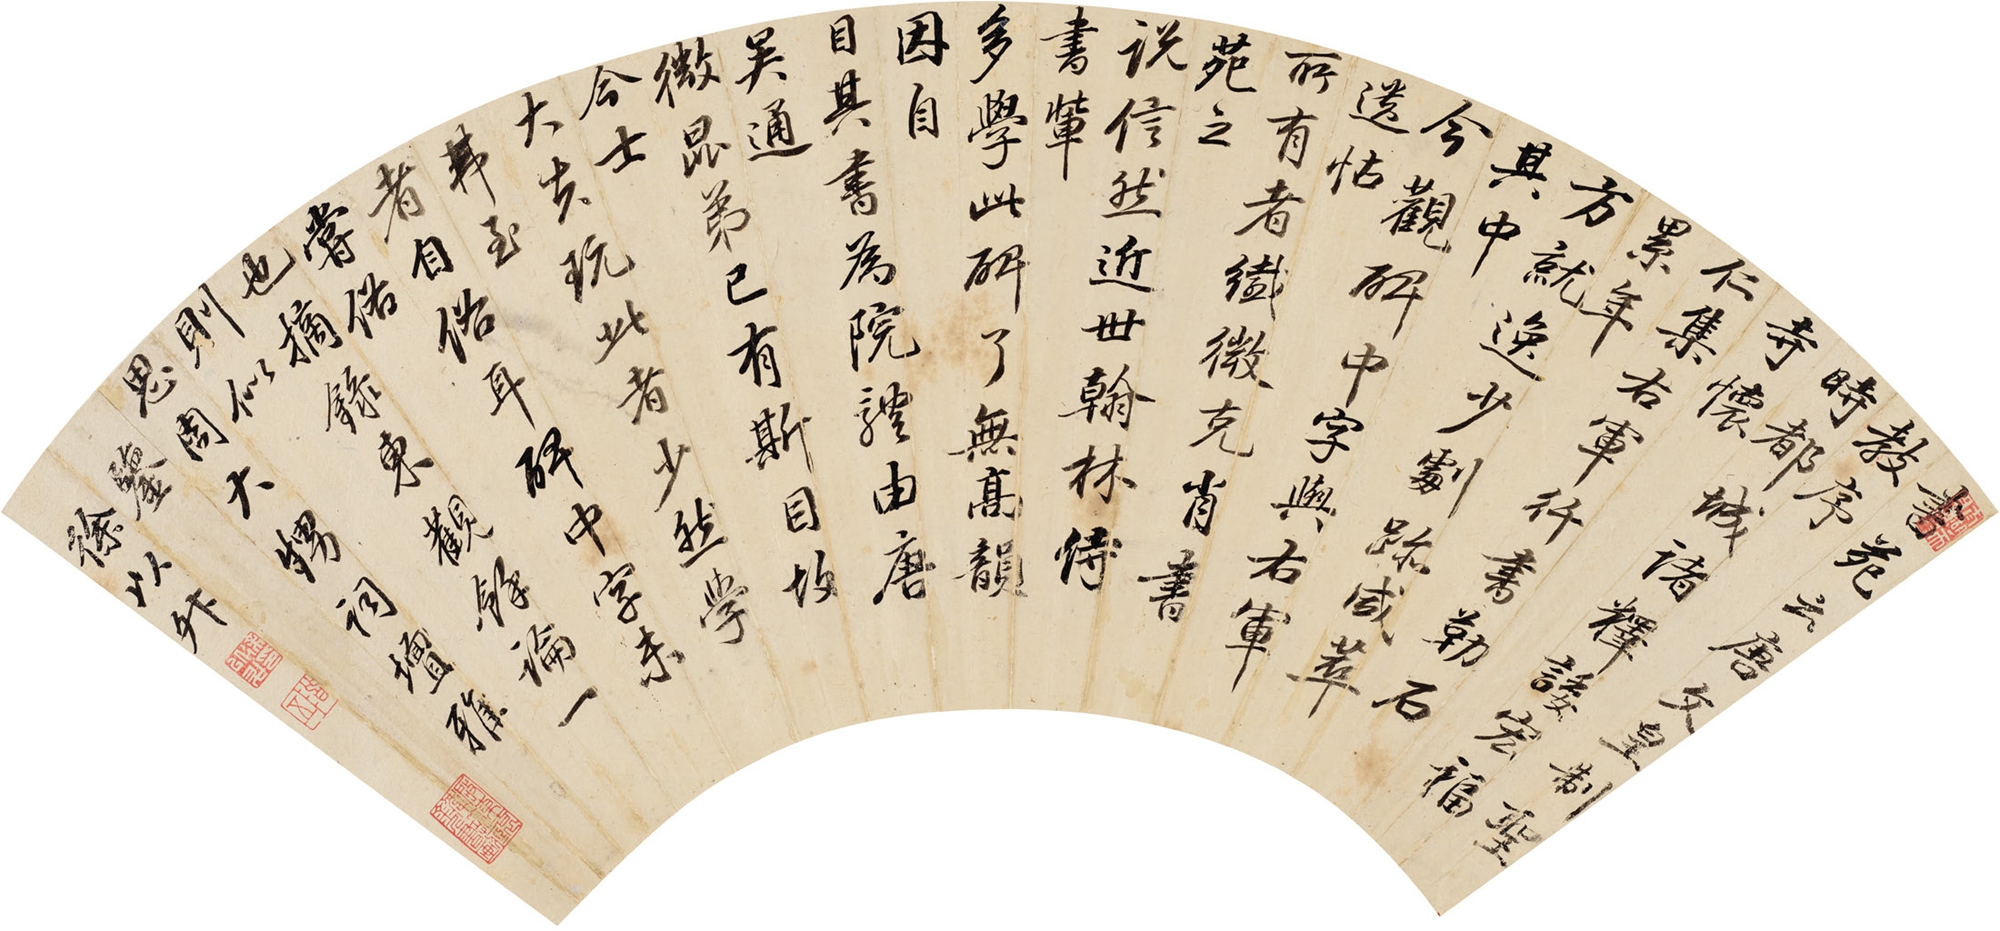 書苑云唐文皇制聖
教序
時都城諸釋諉宏福
寺懷
仁集右軍行書勒石
累年
方就逸少劇跡咸萃
其中
今觀碑中字與右軍
遺帖
所有者纖微克肖書
苑之
說信然近世翰林侍
書輩
多學此碑了無高韻
因自
目其書為院體由唐
吳通
微昆弟已有斯目故
今士
大夫玩此者少然學
弗至
者自俗耳碑中字未
嘗俗
也摘錄東觀餘論一
則似
思周大甥詞壇雅
鑒
徐以升